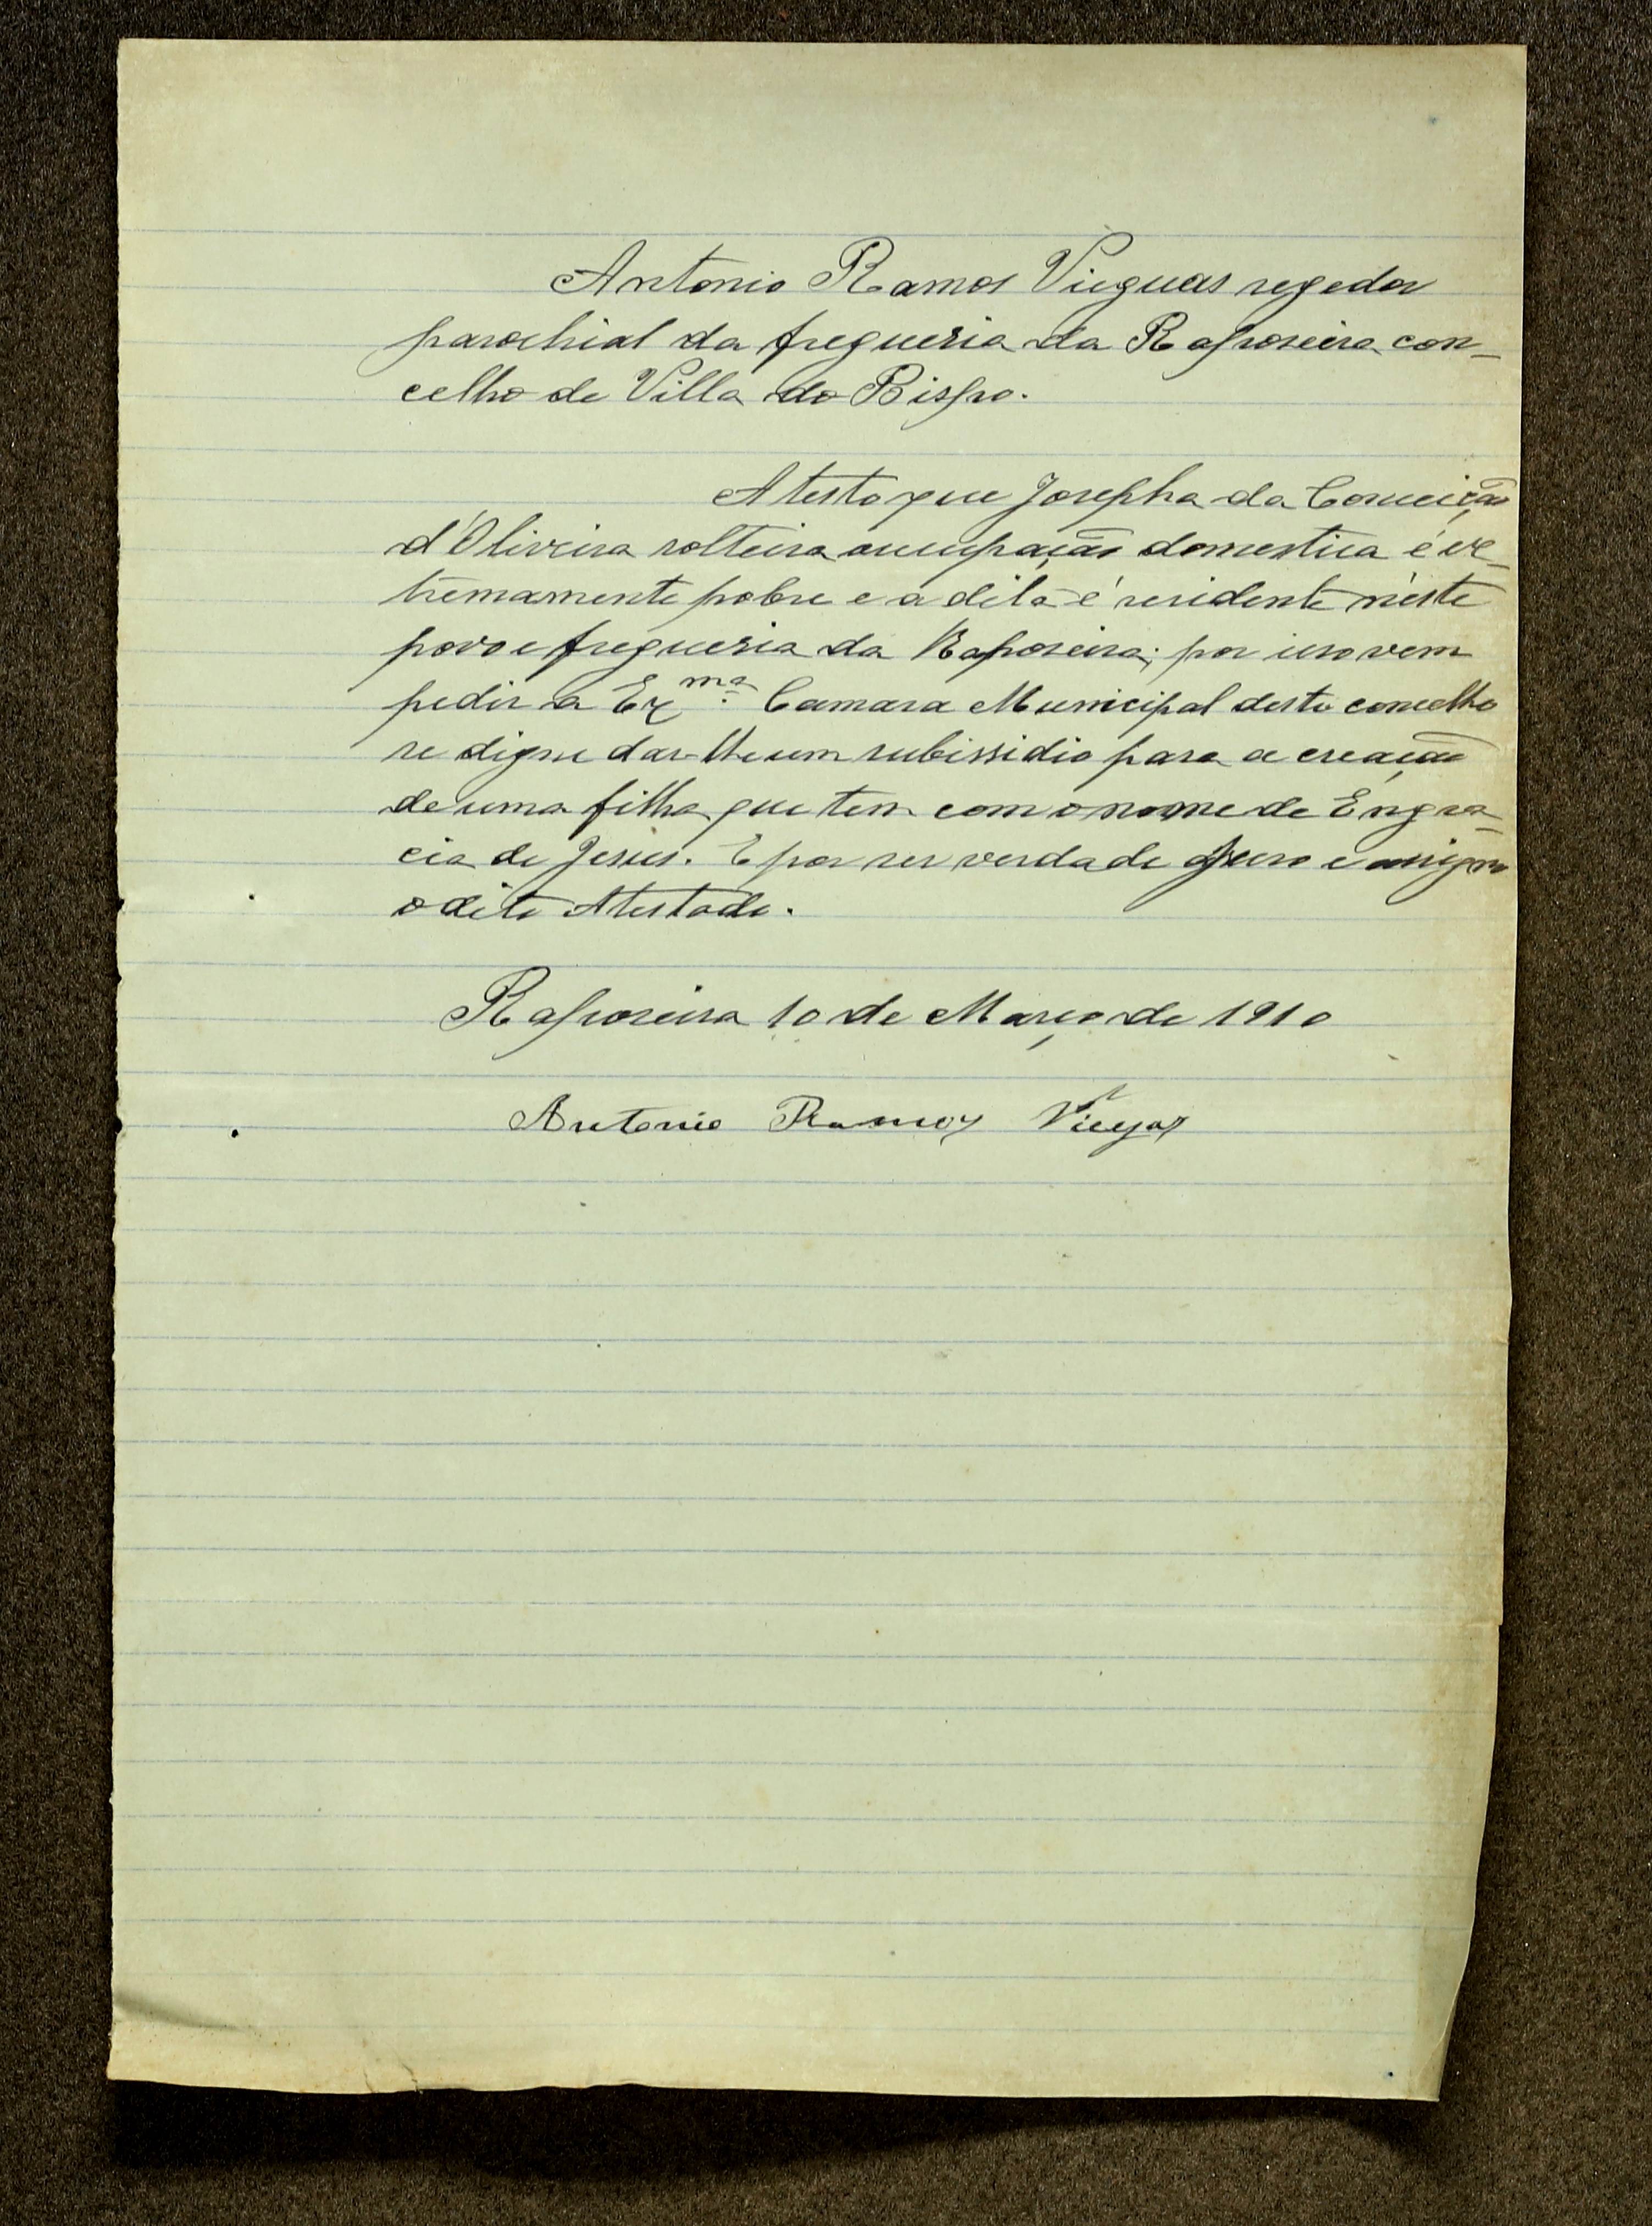 Antonio Ramos Vieguas regedor
parochial da freguesia da Raposeira con-
celho de Villa do Bispo.
Atesto que Josepha da Conceição
d'Oliveira solteira occupação domestica é ex-
tremamente pobre e a dita é residente n'este
povo e freguesia da Raposeira; por isso vem
pedir a Ex.ma Camara Municipal deste concelho
se digne dar-lhe um subissidio para a creação
de uma filha que tem com o nome de Engra-
cia de Jesus. E por ser verdade Juro e assigno
o dito Atestado.
Raposeira 10 de Março de 1910
Antonio Ramos Viegas